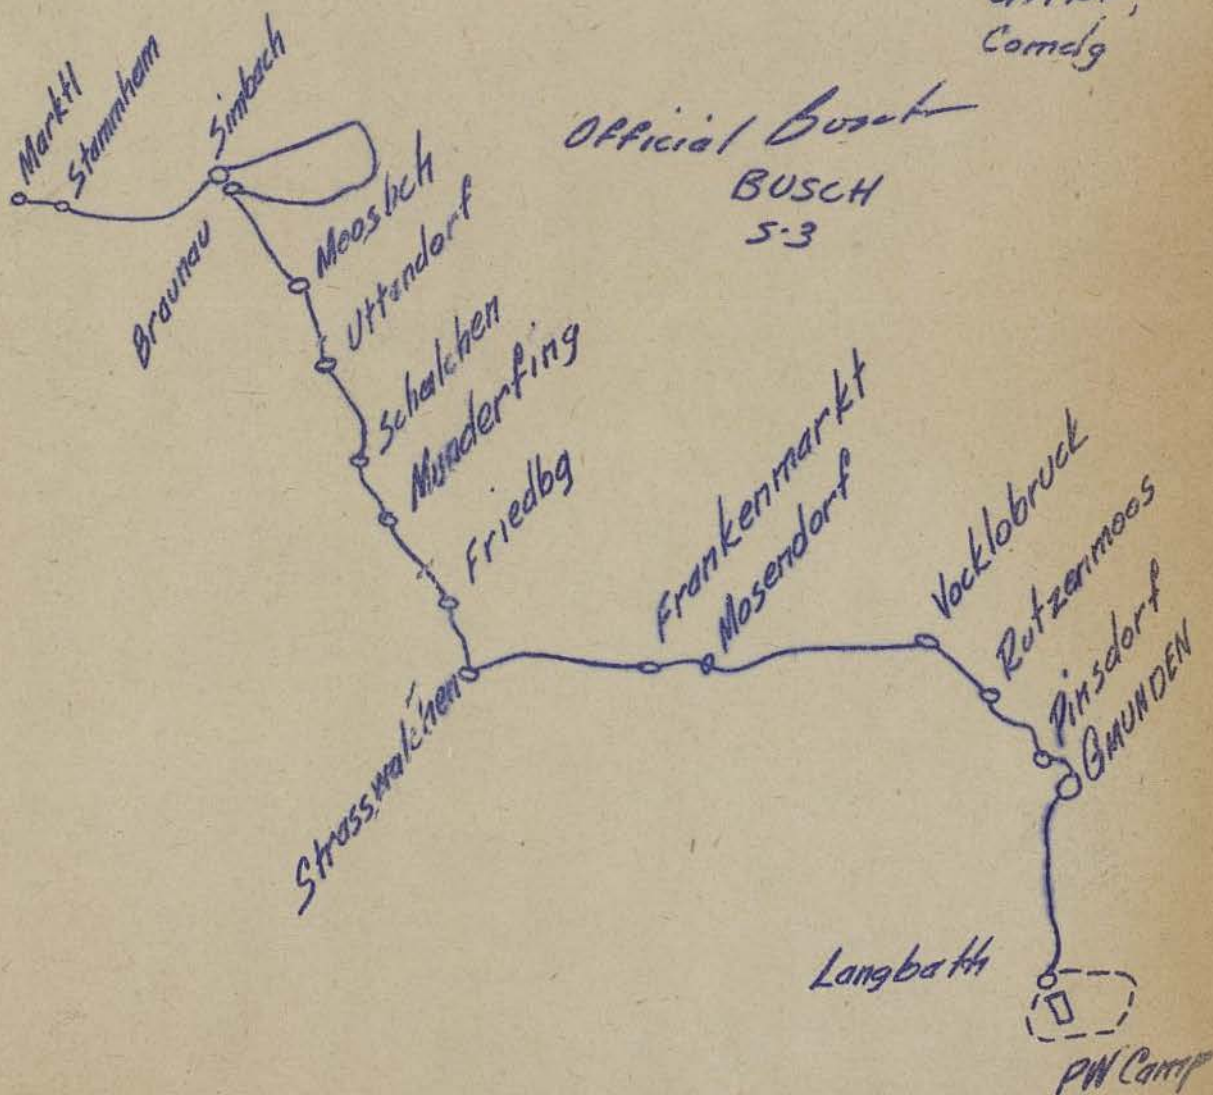 Comdg
Official Busch
BUSCH
S-3
Marktl
Stammham
Simbach
Braunau
Moosbch
Uttendorf
Schalchen
Munderfing
Friedbg
Strasswalchen
Frankenmarkt
Mosendorf
Vocklobruck
Rutzenmoos
Pinsdorf
GMUNDEN
Langbath
PW Camp